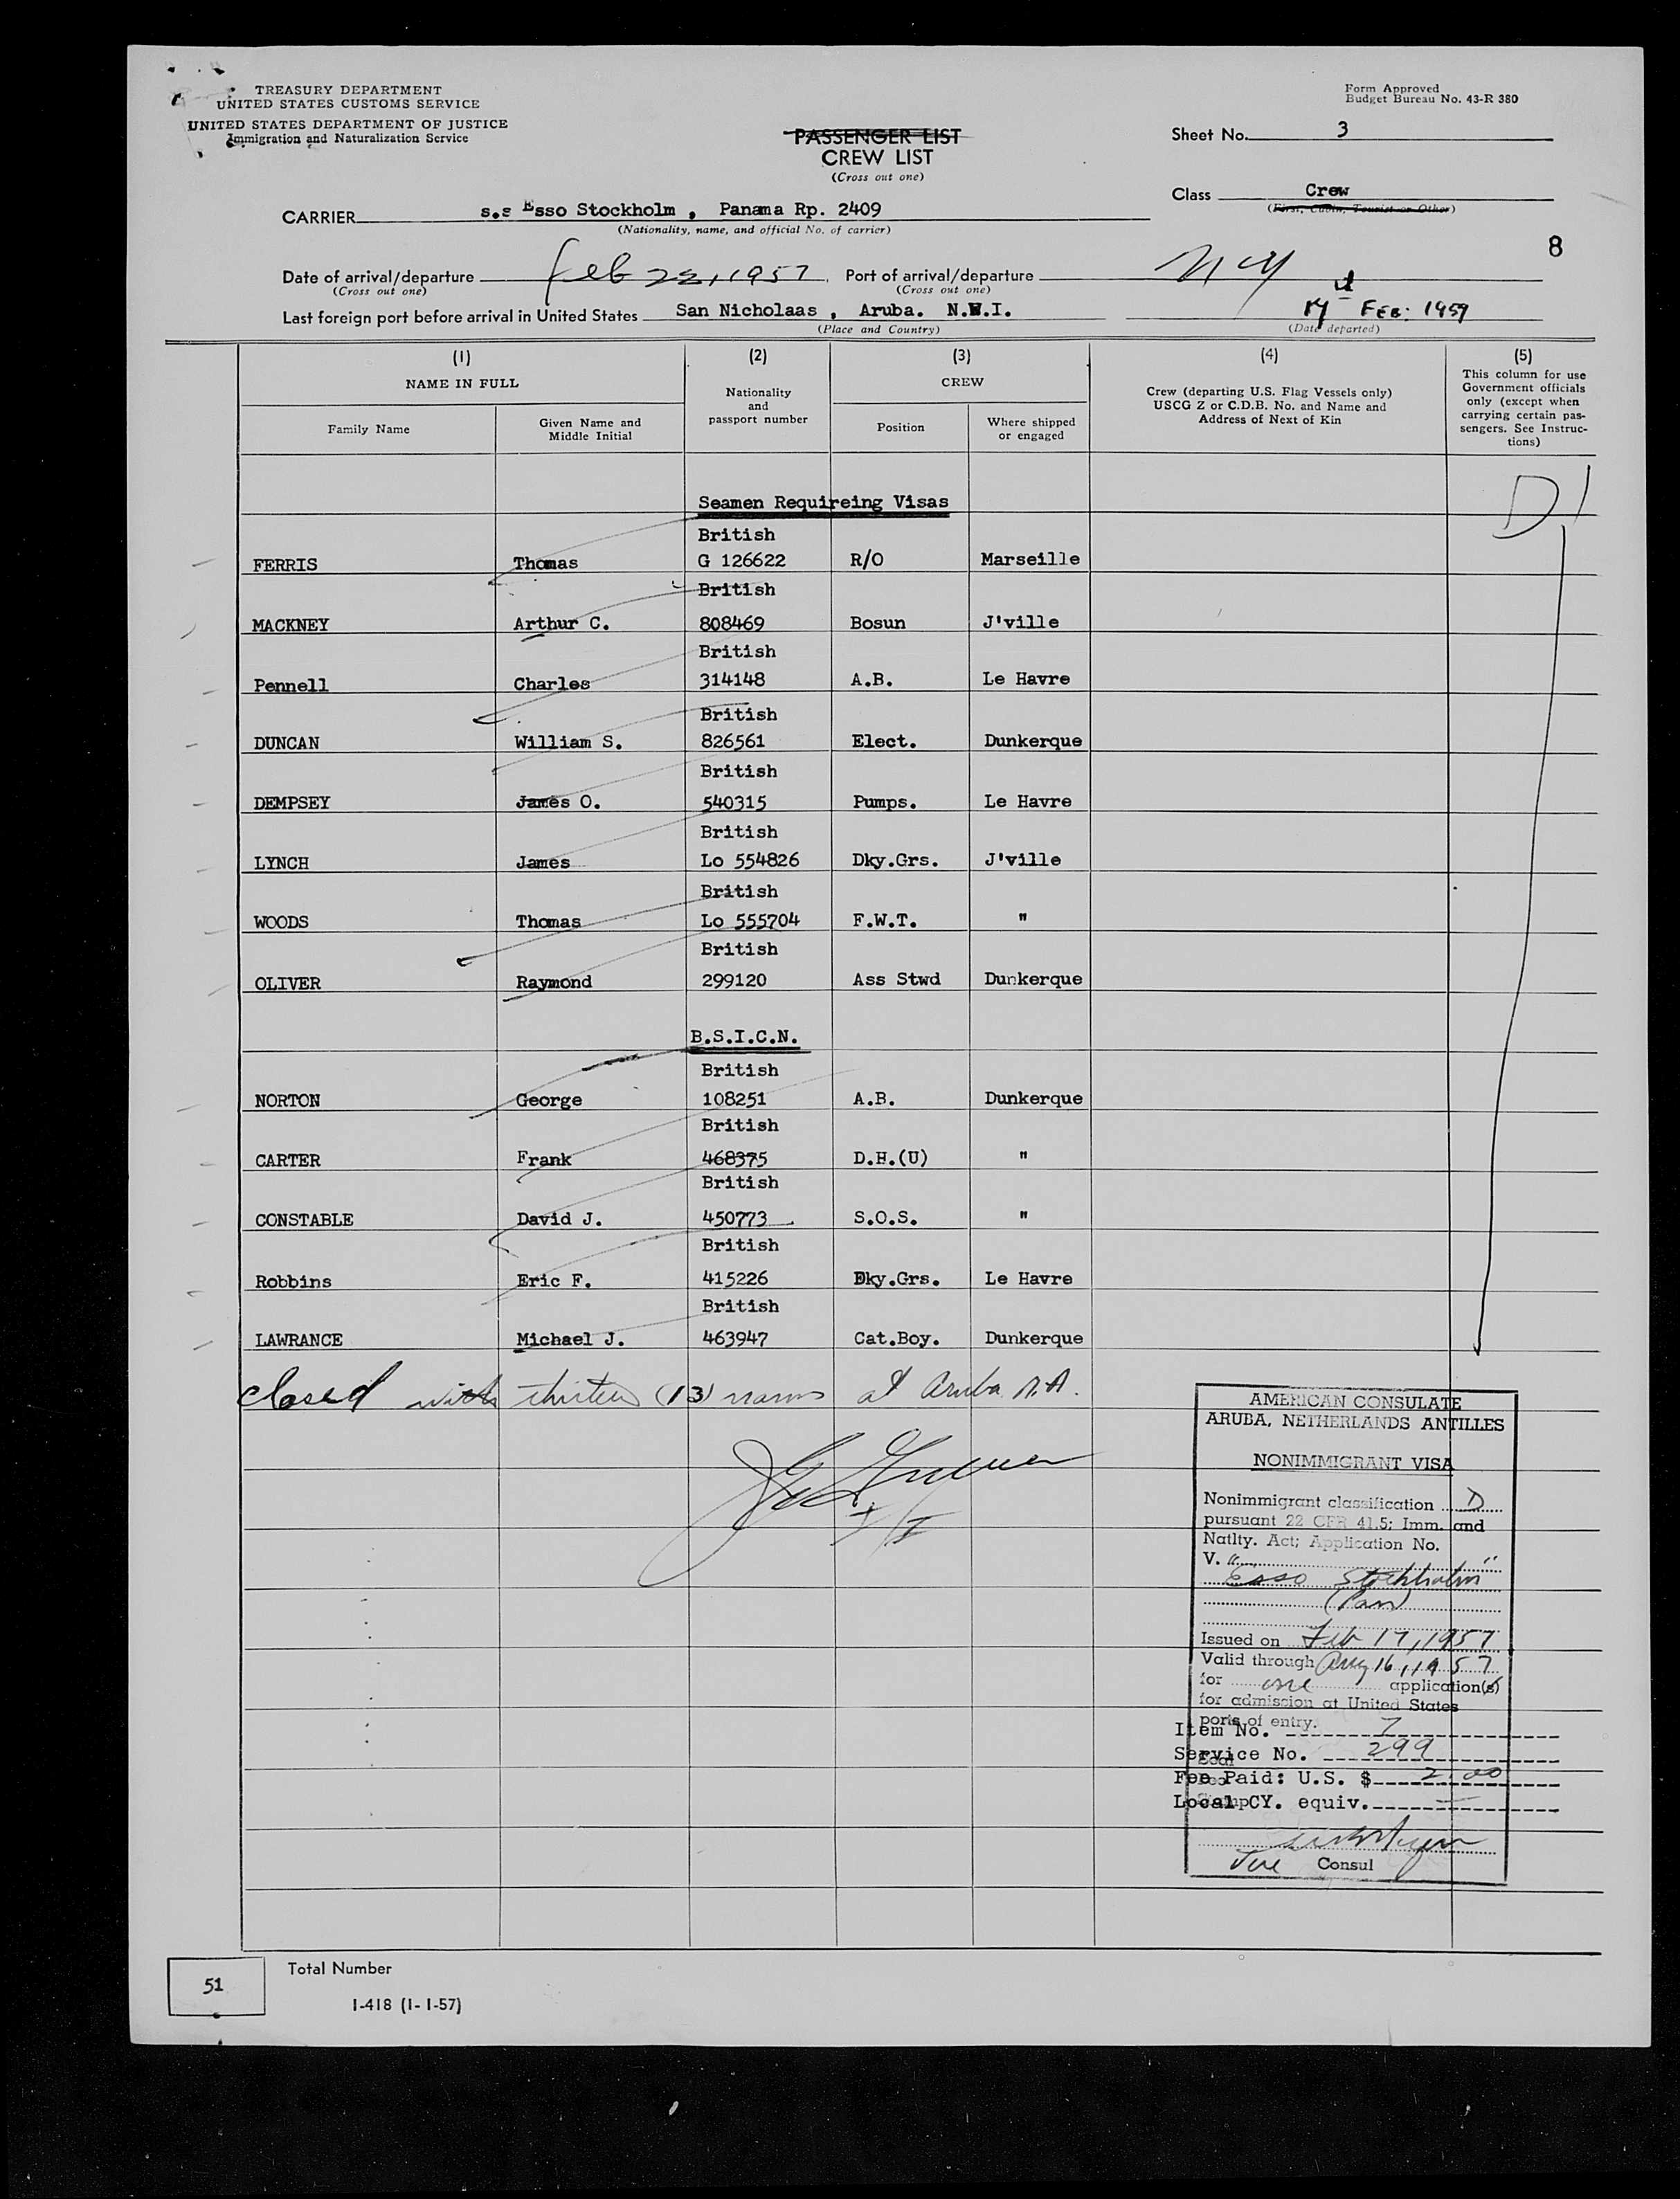 TREASURY DEPARTMENT
UNITED STATES CUSTOMS SERVICE
UNITED STATES DEPARTMENT OF JUSTICE
Immigration and Naturalization Service
Form Approved
Budget Bureau No. 43-R 380
PASSENGER LIST
CREW LIST
(Cross out one)
Sheet No. 3
Class Crew
(First, Cabin, Tourist or Other)
CARRIER s.s Esso Stockholm , Panama Rp. 2409
(Nationality, name, and official No. of carrier)
8
Date of arrival/departure Feb 22, 1957 Port of arrival/departure NCY
(Cross out one) (Cross out one)
Last foreign port before arrival in United States San Nicholaas , Aruba. N.W.I. 17 FEB: 1957
(Place and Country) (Date departed)
(1) (2) (3) (4) (5)
NAME IN FULL
Family Name
Given Name and
Middle Initial
Nationality
and
passport number
CREW
Position
Where shipped
or engaged
Crew (departing U.S. Flag Vessels only)
USCG Z or C.D.B. No. and Name and
Address of Next of Kin
This column for use
Government officials
only (except when
carrying certain pas-
sengers. See Instruc-
tions)
D1
Seamen Requireing Visas
British
FERRIS Thomas G 126622 R/O Marseille
British
MACKNEY Arthur C. 808469 Bosun J'ville
British
Pennell Charles 314148 A.B. Le Havre
British
DUNCAN William S. 826561 Elect. Dunkerque
British
DEMPSEY James O. 540315 Pumps. Le Havre
British
LYNCH James Lo 554826 Dky.Grs. J'ville
British
WOODS Thomas Lo 555704 F.W.T. "
British
OLIVER Raymond 299120 Ass Stwd Dunkerque
B.S.I.C.N.
British
NORTON George 108251 A.B. Dunkerque
British
CARTER Frank 468375 D.H.(U) "
British
CONSTABLE David J. 450773 S.O.S. "
British
Robbins Eric F. 415226 Dky.Grs. Le Havre
British
LAWRANCE Michael J. 463947 Cat.Boy. Dunkerque
closed with thirteen (13) names at Aruba N.A.
AMERICAN CONSULATE
ARUBA, NETHERLANDS ANTILLES
NONIMMIGRANT VISA
Nonimmigrant classification D
pursuant 22 CFR 41.5; Imm. and
Natlty. Act; Application No.
V. "
Esso Stockholm"
(Pan)
Issued on Feb 17, 1957
Valid through Aug 16, 1957
for one application(s)
for admission at United States
ports of entry.
Item No. 7
Service No. 299
Fee Paid: U.S. $ 2.00
Local CY. equiv. —
Vice Consul
51
Total Number
I-418 (1-1-57)